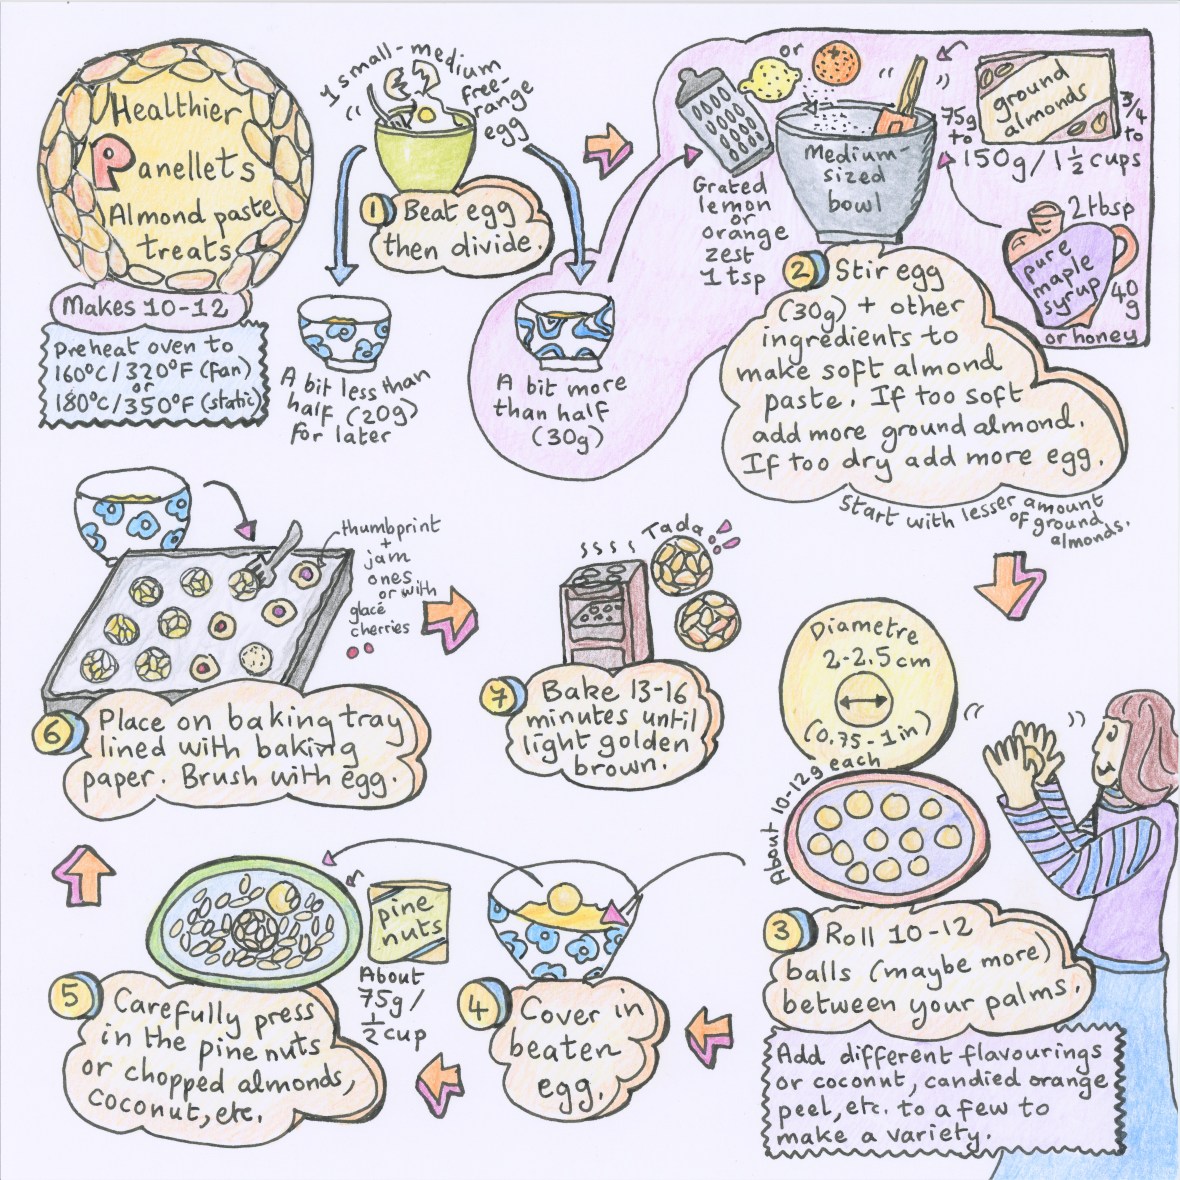 Healthier
Panellets
Almond paste
treats
Makes 10-12
Preheat oven to
160°C/320°F (fan)
or
180°C/350°F (static)
1 small-medium
free-
range
egg
1 Beat egg
then divide.
A bit less than
half (20g)
for later
A bit more
than half
(30g)
Grated
lemon
or
orange
zest
1 tsp
or
Medium-
sized
bowl
ground
almonds
75g
to
150g/1½ cups
3/4
to
2 tbsp
pure
maple
syrup
40
g
or honey
2 Stir egg
(30g) + other
ingredients to
make soft almond
paste. If too soft
add more ground almond.
If too dry add more egg.
Start with lesser amount
of ground
almonds.
Diametre
2-2.5cm
(0.75-1in)
About 10-12g each
3 Roll 10-12
balls (maybe more)
between your palms.
Add different flavourings
or coconut, candied orange
peel, etc. to a few to
make a variety.
4 Cover in
beaten
egg.
pine
nuts
About
75g/
½ cup
5 Carefully press
in the pine nuts
or chopped almonds,
coconut, etc.
thumbprint
+
jam
ones
or with
glacé
cherries
6 Place on baking tray
lined with baking
paper. Brush with egg.
Tada
7 Bake 13-16
minutes until
light golden
brown.